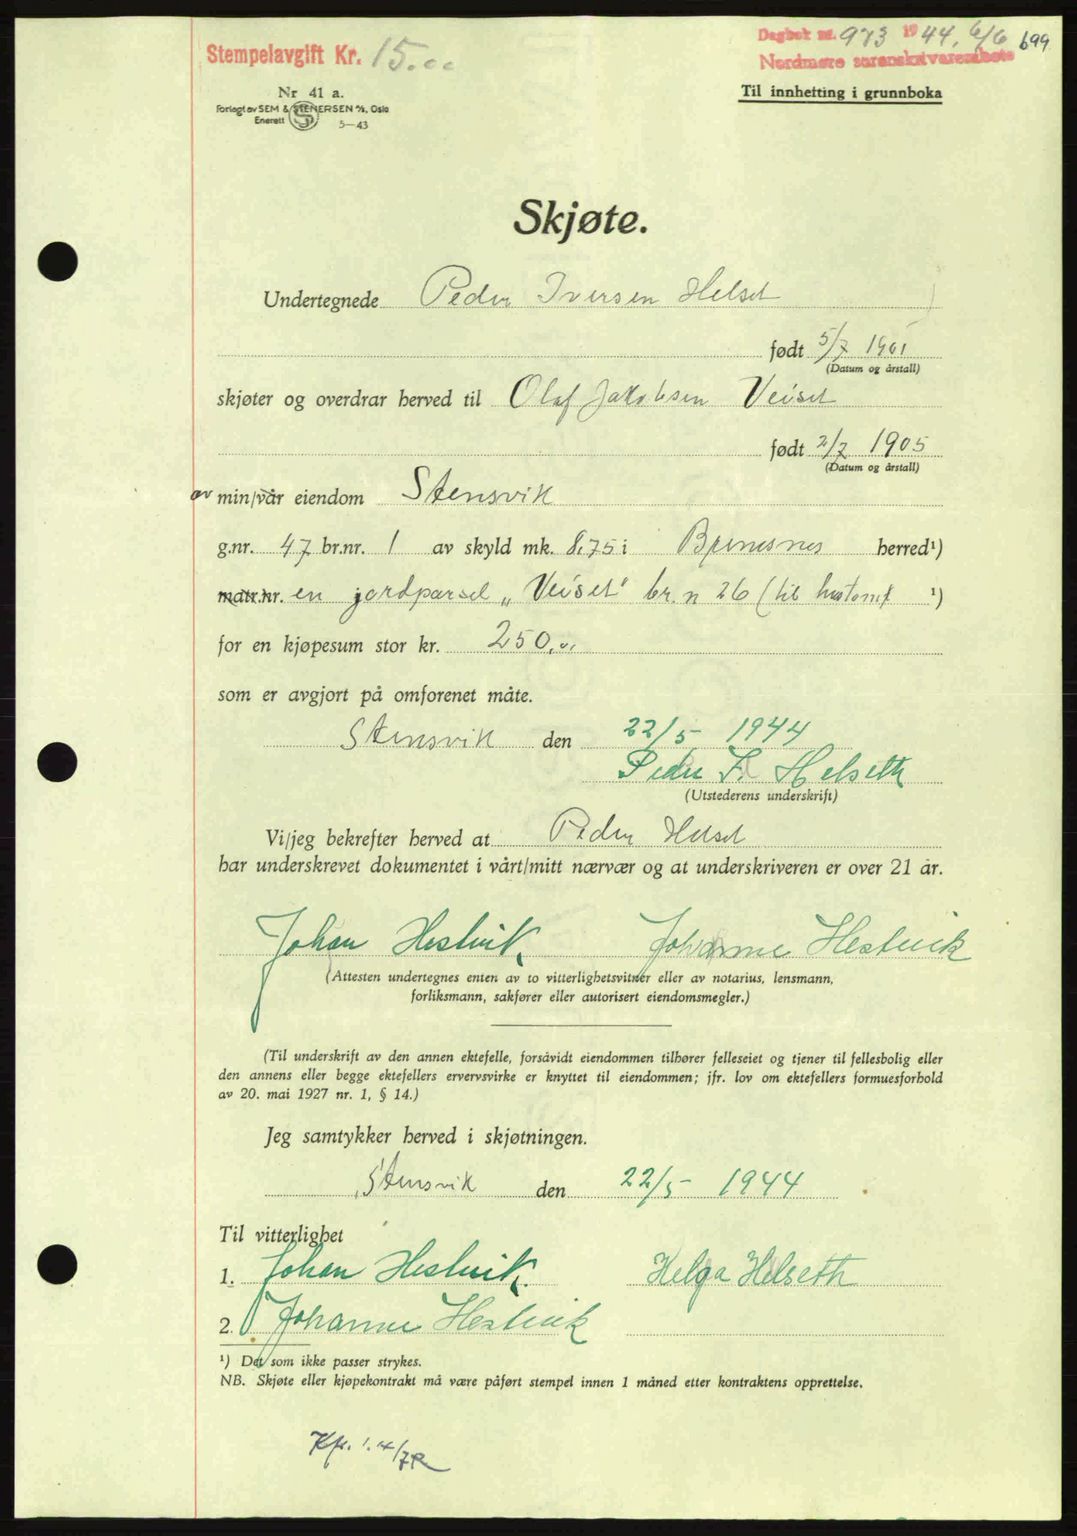 Stempelavgift Kr. 15.00
Dagbok nr. 973 1944, 6/6 699
Nordmøre sorenskriverembete
Nr 41 a.
Forlagt av SEM & STENERSEN A/S, Oslo
Enerett S 5—43
Til innhefting i grunnboka
Skjøte.
Undertegnede Peder Iversen Helset
født 5/7 1901
(Datum og årstall)
skjøter og overdrar herved til Olaf Jakobsen Veiset
født 2/7 1905
(Datum og årstall)
av min/vår eiendom Stensvik
g.nr. 47 br.nr. 1 av skyld mk. 8,75 i Bremsnes herred¹)
matr.nr. en jordparsel „Veiset" br. n 26 (til hustomt ¹)
for en kjøpesum stor kr. 250,00
som er avgjort på omforenet måte.
Stensvik den 22/5 - 1944
Peder I. Helseth
(Utstederens underskrift)
Vi/jeg bekrefter herved at Peder Helset
har underskrevet dokumentet i vårt/mitt nærvær og at underskriveren er over 21 år.
Johan Hestvik. Johanne Hestvik
(Attesten undertegnes enten av to vitterlighetsvitner eller av notarius, lensmann,
forliksmann, sakfører eller autorisert eiendomsmegler.)
(Til underskrift av den annen ektefelle, forsåvidt eiendommen tilhører felleseiet og tjener til fellesbolig eller
den annens eller begge ektefellers ervervsvirke er knyttet til eiendommen; jfr. lov om ektefellers formuesforhold
av 20. mai 1927 nr. 1, § 14.)
Jeg samtykker herved i skjøtningen.
Stensvik den 22/5 - 1944
Til vitterlighet
1. Johan Hestvik. Helga Helseth
2. Johanne Hestvik
¹) Det som ikke passer strykes.
NB. Skjøte eller kjøpekontrakt må være påført stempel innen 1 måned etter kontraktens opprettelse.